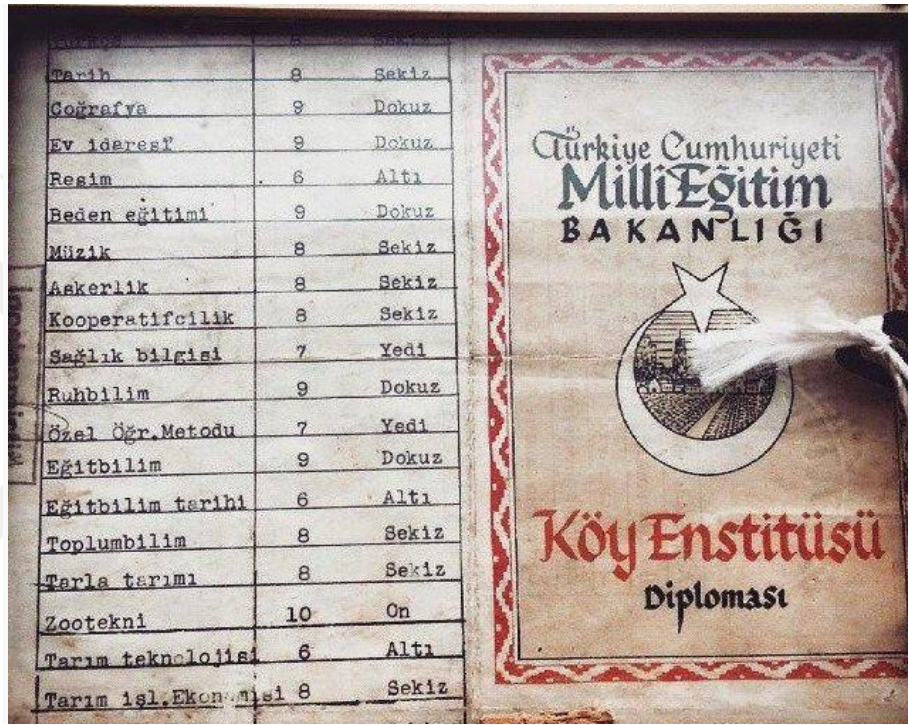 Tarih 8 Sekiz
Coğrafya 9 Dokuz
Ev idaresi 9 Dokuz
Resim 6 Altı
Beden eğitimi 9 Dokuz
Müzik 8 Sekiz
Askerlik 8 Sekiz
Kooperatifcilik 8 Sekiz
Sağlık bilgisi 7 Yedi
Ruhbilim 9 Dokuz
Özel Öğr.Metodu 7 Yedi
Eğitbilim 9 Dokuz
Eğitbilim tarihi 6 Altı
Toplumbilim 8 Sekiz
Tarla tarımı 8 Sekiz
Zootekni 10 On
Tarım teknolojisi 6 Altı
Tarım işl.Ekonomisi 8 Sekiz
Türkiye Cumhuriyeti
Millî Eğitim
BAKANLIĞI
Köy Enstitüsü
Diploması